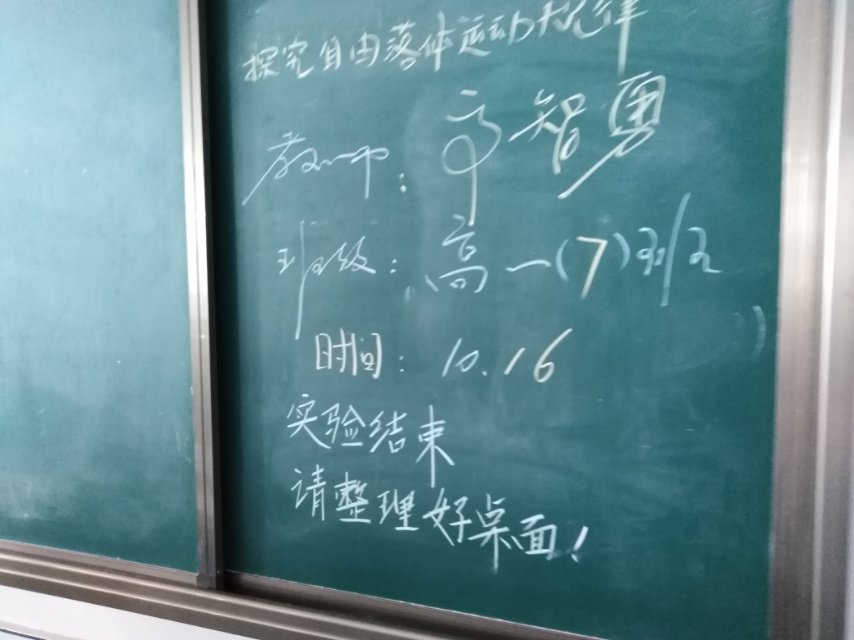 探究自由落体运动规律
教师：高智勇
班级：高一(7)班
时间：10.16
实验结束
请整理好桌面！